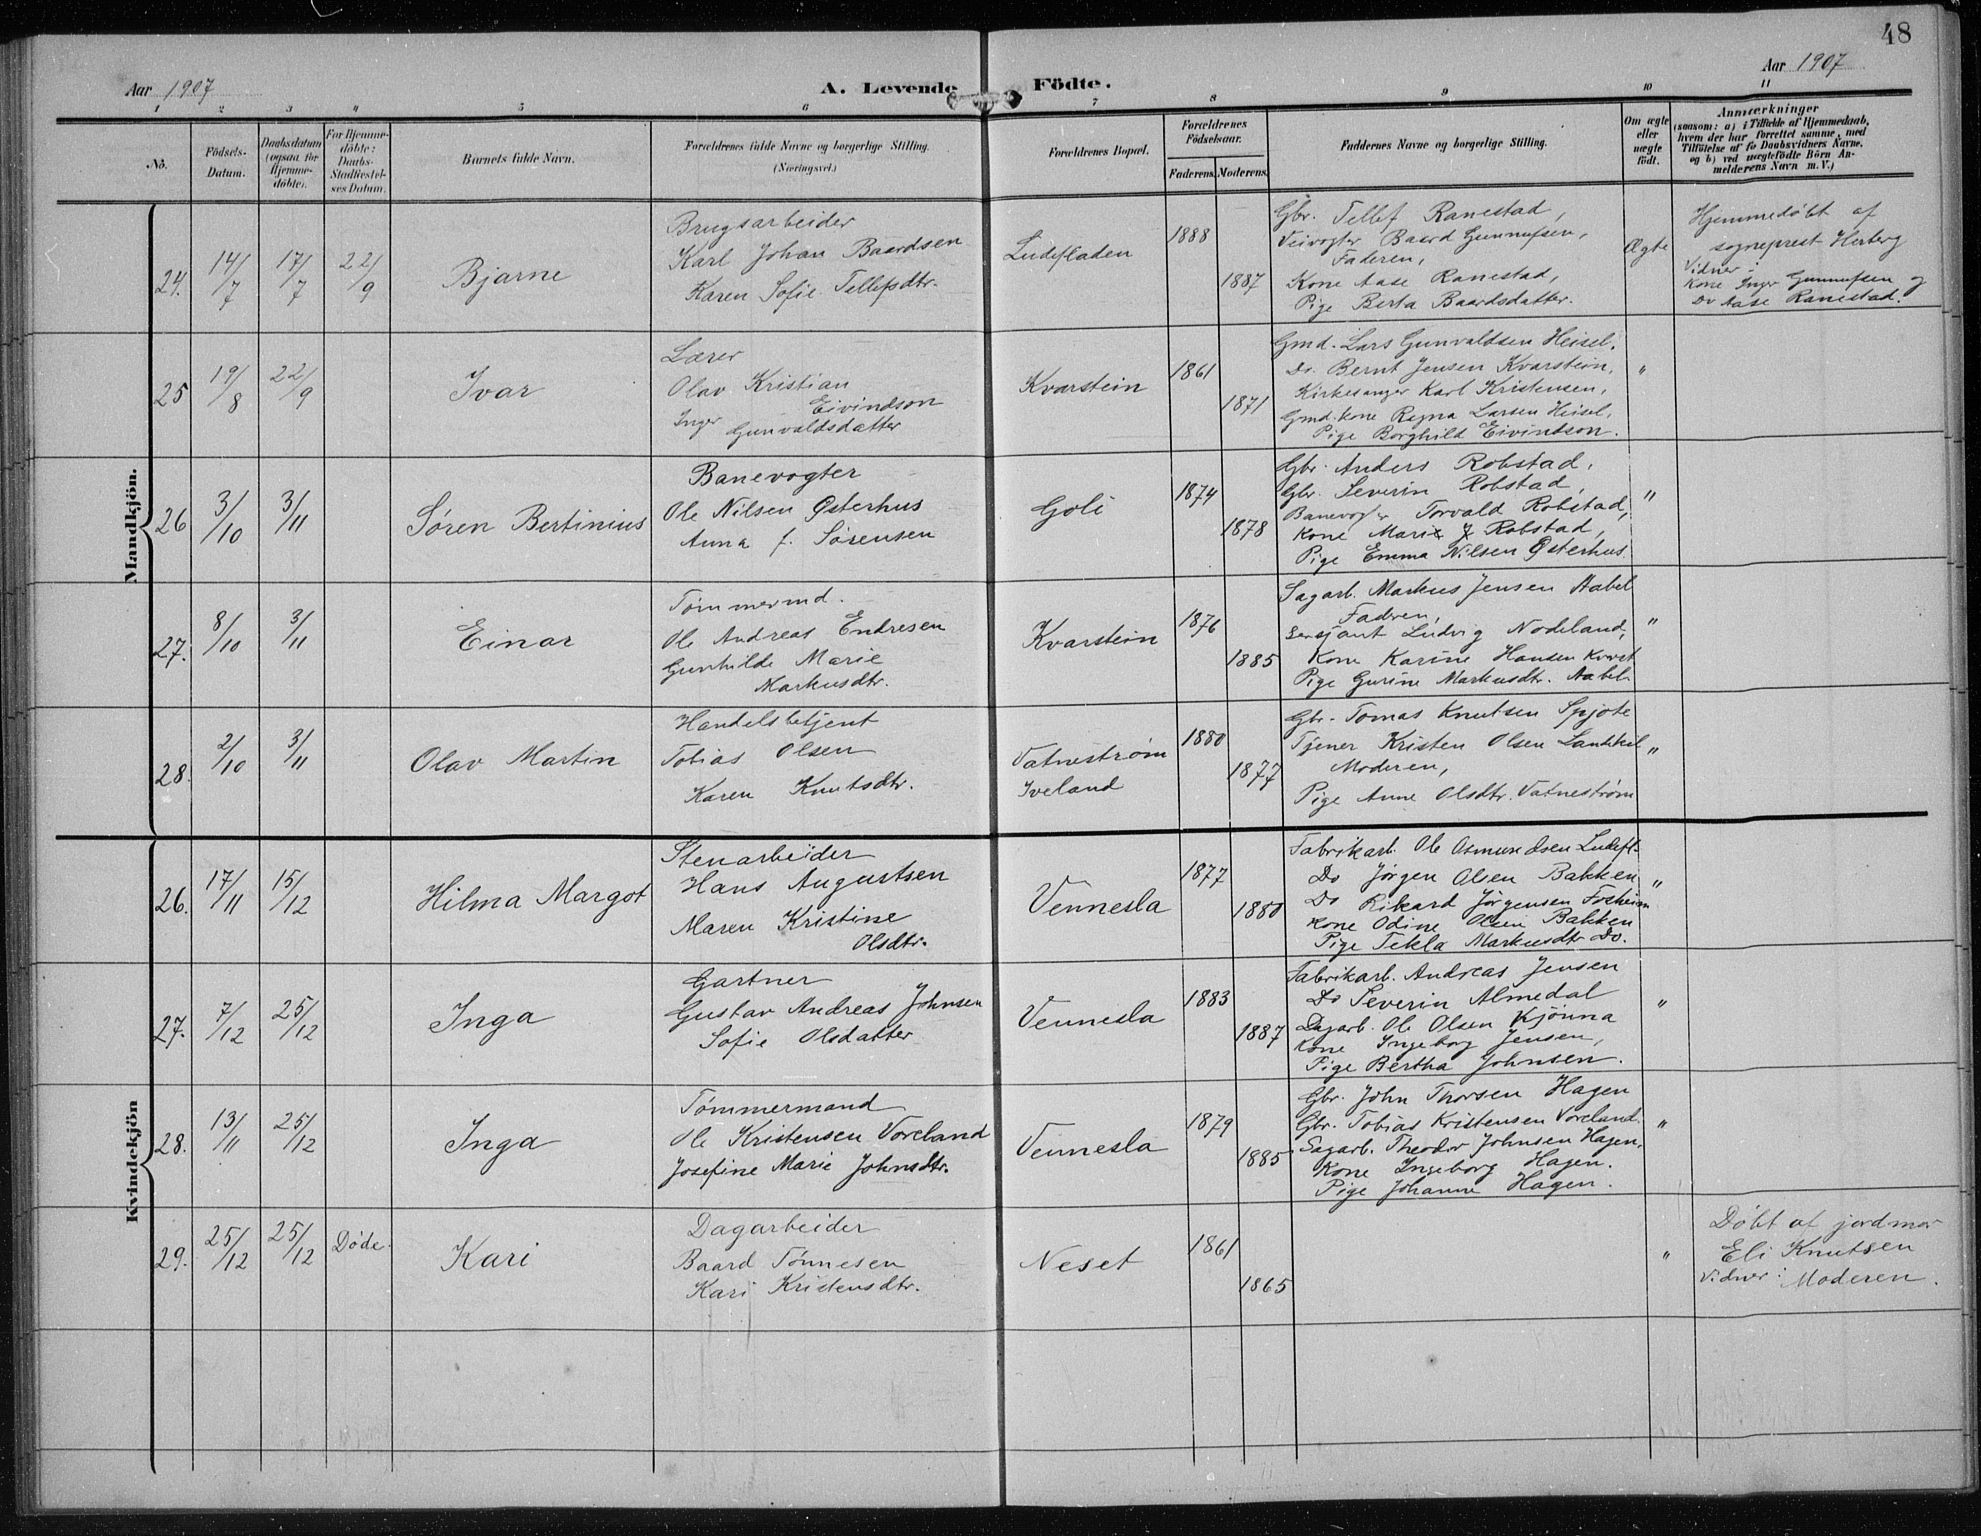 48
Aar 1907
A. Levende Födte.
Aar 1907
1 2 3 4 5 6 7 8 9 10 11
No.
Födsels-
Datum.
Daabsdatum
(ogsaa for
Hjemme-
döbte).
For Hjemme-
döbte:
Daabs-
Stadfæstel-
ses Datum.
Barnets fulde Navn.
Forældrenes fulde Navne og borgerlige Stilling.
(Næringsvei.)
Forældrenes Bopæl.
Forældrenes
Födselsaar.
Faderens. Moderens.
Faddernes Navne og borgerlige Stilling.
Om ægte
eller
uægte
födt.
Anmærkninger
(saasom: a) i Tilfælde af Hjemmedaab,
hvem der har forrettet samme, med
Tilföielse af to Daabsvidners Navne,
og b) ved uægtefödte Börn An-
melderens Navn m. V.)
Mandkjön.
24. 14/7 17/7 22/9
Bjarne
Brugsarbeider
Karl Johan Baardsen
Karen Sofie Tellefsdtr.
Ludefladen
1888
1887
Gbr. Tellef Ranestad,
Veivogter Baard Gunnufsen,
Faderen,
Kone Aase Ranestad,
Pige Berta Baardsdatter.
Ægte
Hjemmedöbt af
sogneprest Herberg
Vidner:
Kone Inger Gunnufsen og
Do Aase Ranestad.
25 19/8 22/9
Ivar
Lærer
Olav Kristian
Eivindson
Inger
Gunvaldsdatter
Kvarstein
1861
1871
Gmd. Lars Gunvaldsen Heisel.
Do. Bernt Jensen Kvarstein,
Kirkesanger Karl Kristensen,
Gmd.kone Regna Larsen Heisel,
Pige Borghild Eivindson.
"
26 3/10 3/11
Søren Bertinius
Banevogter
Ole Nilsen Østerhus
Anna f. Sørensen
Goli
1874
1878
Gbr. Anders Robstad,
Gbr. Severin Robstad,
Banevogter Torvald Robstad,
Kone Marie J Robstad,
Pige Emma Nilsen Østerhus
"
27. 8/10 3/11
Einar
Tømmermd.
Ole Andreas Endresen
Gunhilde Marie
Markusdtr.
Kvarstein
1876
1885
Sagarb. Markus Jensen Aabel
Faderen,
Sersjant Ludvig Nodeland,
Kone Karine Hansen Kvarst.
Pige Gurine Markusdtr. Aabel.
"
28. 2/10 3/11
Olav Martin
Handelsbetjent
Tobias Olsen
Karen Knutsdtr.
Vatnestrøm
Iveland
1880
1877
Gbr. Tomas Knutsen Spjote
Tjener Kristen Olsen
Moderen,
Pige Anne Olsdtr. Vatnestrøm
"
Kvindekjön
26. 17/11 15/12
Hilma Margot
Stenarbeider
Hans Augustsen
Maren Kristine
Olsdtr.
Vennesla
1877
1880
Fabrikarb. Ole Osmundsen Ludefl.
Do Jørgen Olsen Bakken
Do Rikard Jørgensen Foskeim
Kone Odine Olsen Bakken
Pige Tekla Markusdtr Do.
"
27. 7/12 25/12
Inga
Gartner
Gustav Andreas Johnsen
Sofie Olsdatter
Vennesla
1883
1887
Fabrikarb. Andreas Jensen
Do Severin Almedal
Dagarb. Ole Olsen Kjönna
Kone Ingeborg Jensen,
Pige Bertha Johnsen.
"
28. 13/11 25/12
Inga
Tömmermand
Ole Kristensen Voreland
Josefine Marie Johnsdtr.
Vennesla
1879
1885
Gbr. John Thorsen Hagen
Gbr. Tobias Kristensen Voreland.
Sagarb. Theodor Johnsen Hagen,
Kone Ingeborg Hagen.
Pige Johanne Hagen.
"
29. 25/12 25/12 Døde.
Kari
Dagarbeider
Baard Tönnesen
Kari Kristensdtr.
Neset
1861
1865
"
Döbt af jordmor
Eli Knutsen
Vidner: Moderen.